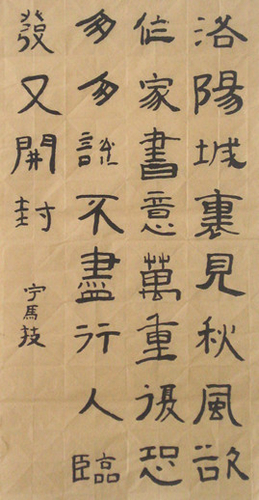 洛陽城裏見秋風欲
作家書意萬重復恐
匆匆說不盡行人臨
發又開封
宁馬技